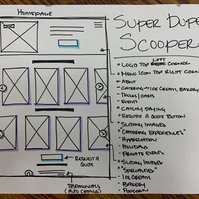 HOMEPAGE
SUPER DUPER
SCOOPER
LEFT
- LOGO TOP CORNER
- MENU ICON TOP RIGHT CORNER
- ABOUT
- CATERING → ICE CREAM, BAKERY
- TRUCKS / CARTS
- EVENTS
- CATCHY SAYING
- REQUEST A QUOTE BUTTON
- SLIDING IMAGES
- "CATERING EXPERIENCES"
- APPRECIATION
- HOLIDAY
- PRIVATE EVENT
- SLIDING IMAGES
- "SPECIALTIES"
- ICE CREAM
- BAKERY
- POPCORN
REQUEST A
QUOTE
TESTIMONIALS
(AUTO CHANGE)